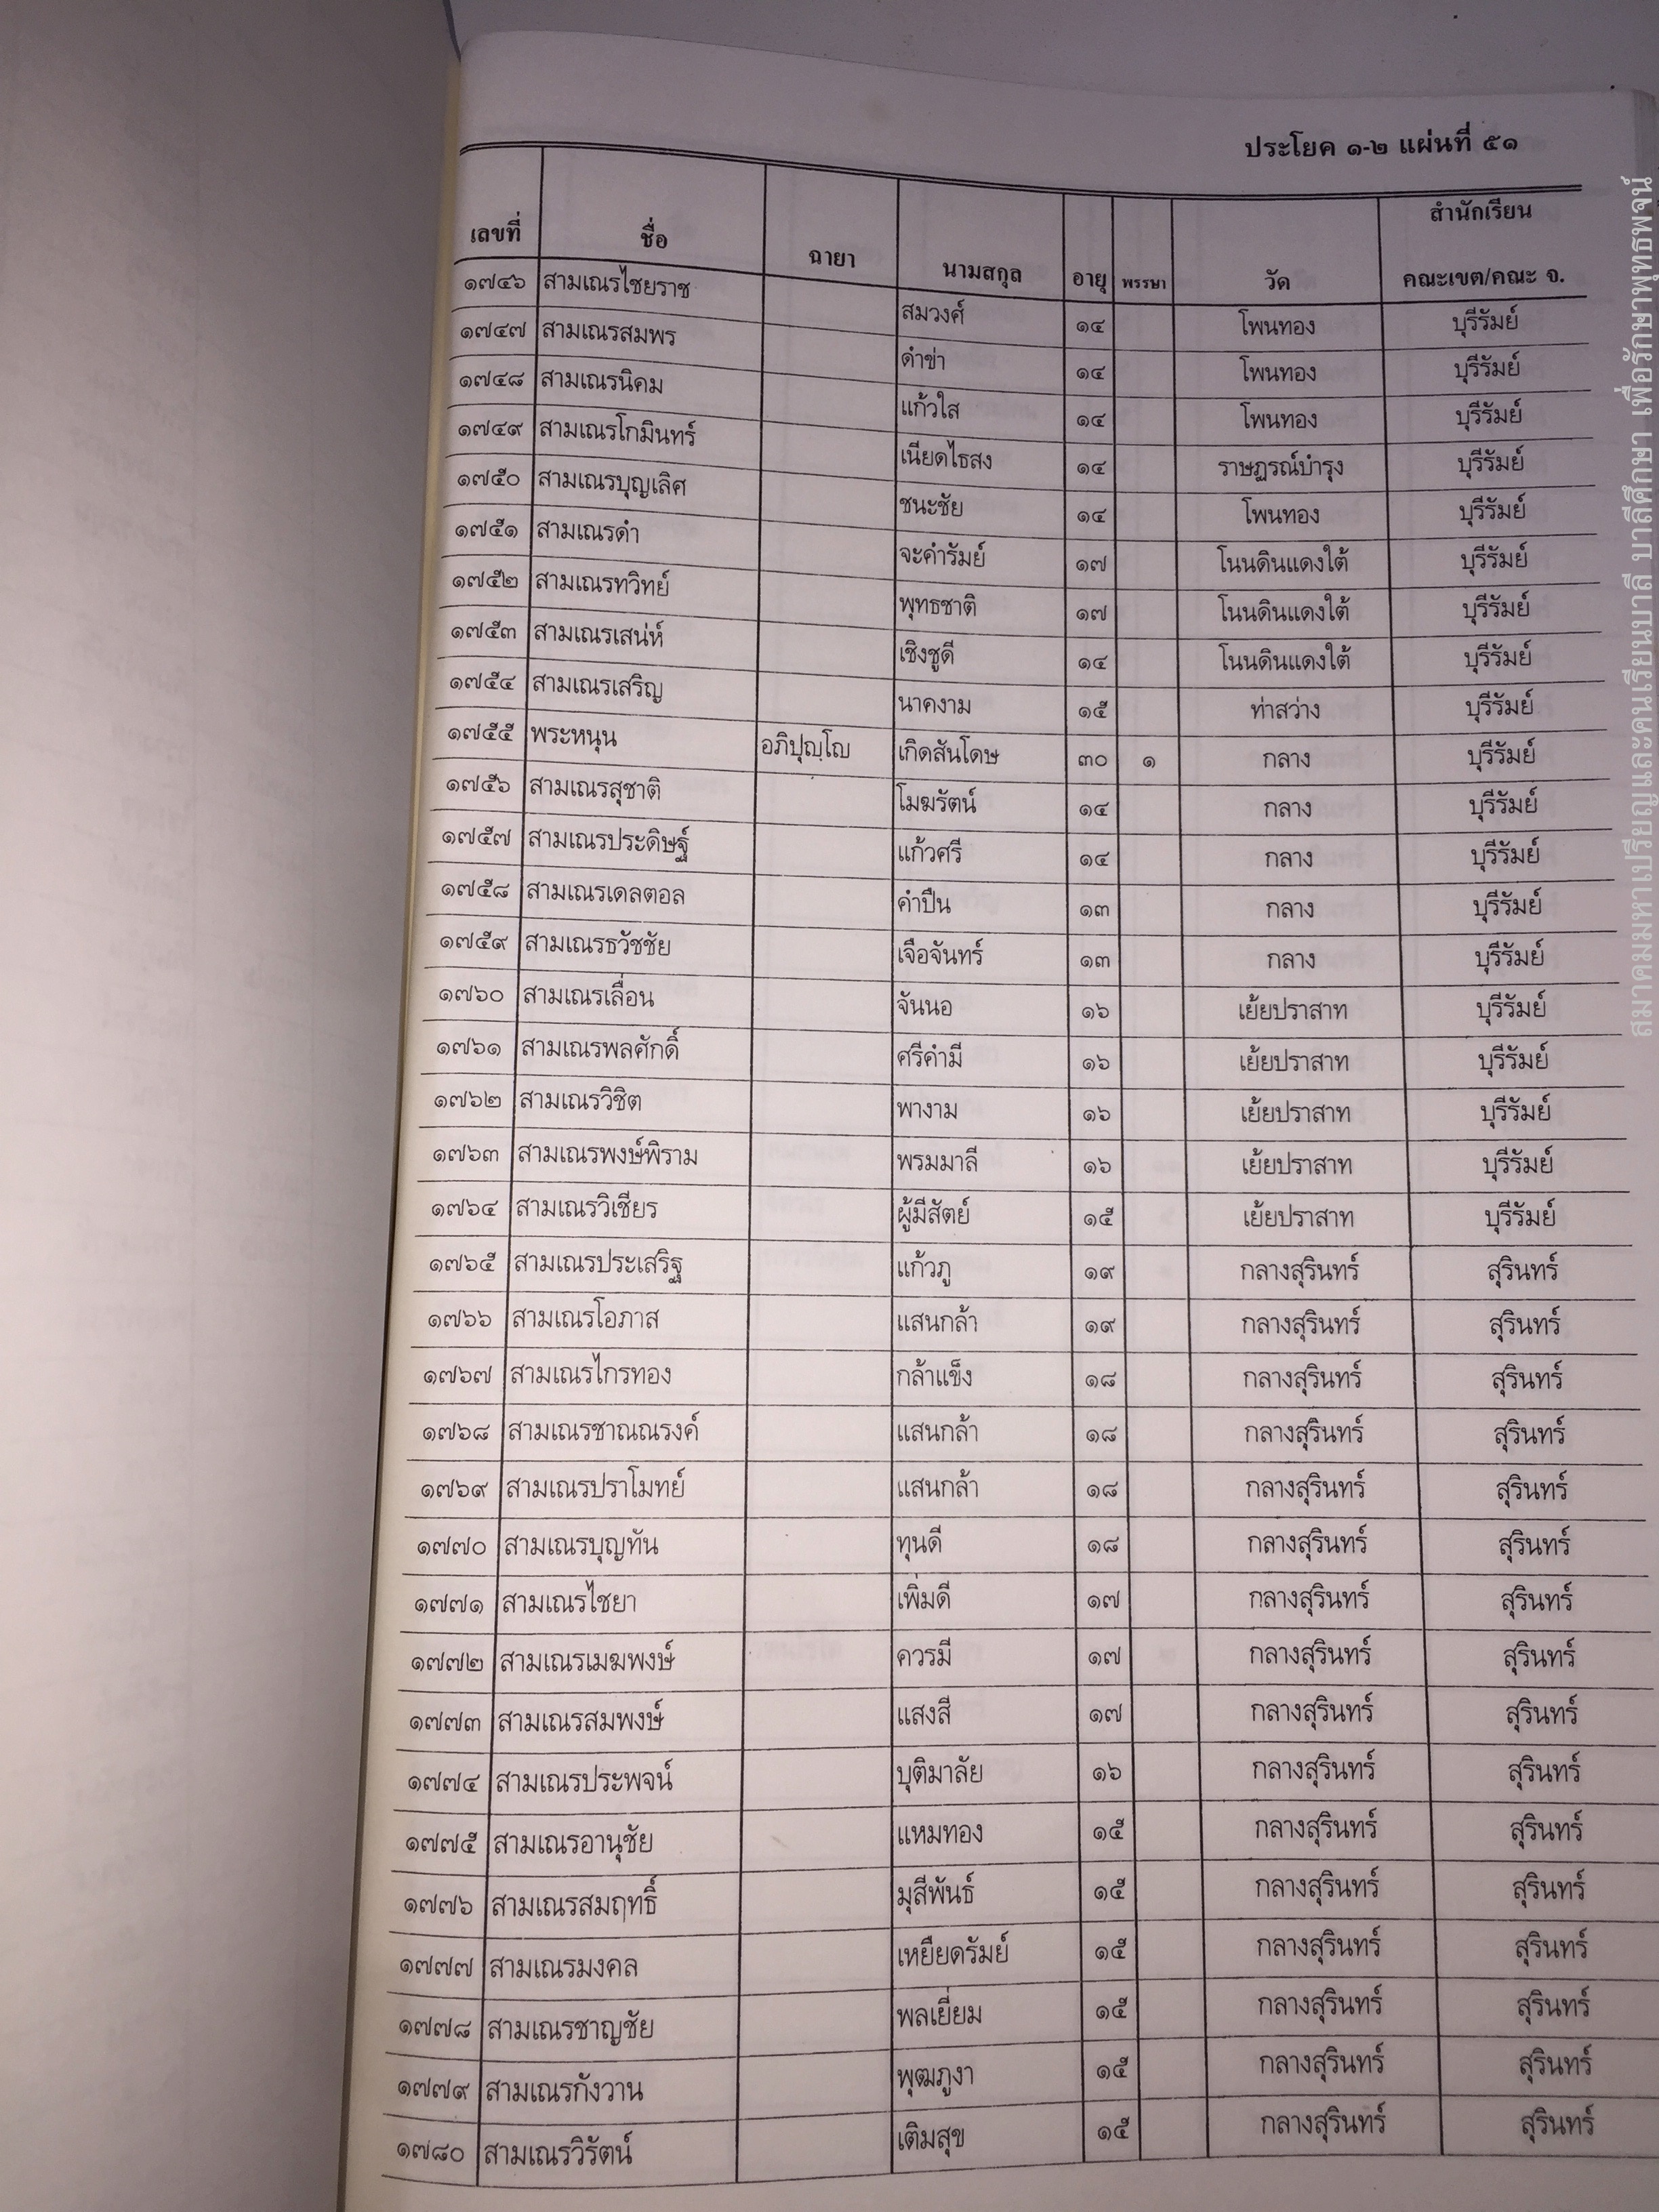 ประโยค ๑-๒ แผ่นที่ ๕๑
เลขที่ ชื่อ ฉายา นามสกุล อายุ พรรษา วัด สำนักเรียน คณะเขต/คณะ จ.
๑๗๔๖ สามเณรไชยราช สมวงศ์ ๑๔ โพนทอง บุรีรัมย์
๑๗๔๗ สามเณรสมพร ดำข่า ๑๔ โพนทอง บุรีรัมย์
๑๗๔๘ สามเณรนิคม แก้วใส ๑๔ โพนทอง บุรีรัมย์
๑๗๔๙ สามเณรโกมินทร์ เนียดไธสง ๑๔ ราษฏรณ์บำรุง บุรีรัมย์
๑๗๕๐ สามเณรบุญเลิศ ชนะชัย ๑๔ โพนทอง บุรีรัมย์
๑๗๕๑ สามเณรดำ จะคำรัมย์ ๑๗ โนนดินแดงใต้ บุรีรัมย์
๑๗๕๒ สามเณรทวิทย์ พุทธชาติ ๑๗ โนนดินแดงใต้ บุรีรัมย์
๑๗๕๓ สามเณรเสน่ห์ เชิงชูดี ๑๔ โนนดินแดงใต้ บุรีรัมย์
๑๗๕๔ สามเณรเสริญ นาคงาม ๑๕ ท่าสว่าง บุรีรัมย์
๑๗๕๕ พระหนุน อภิปุญฺโญ เกิดสันโดษ ๓๐ ๑ กลาง บุรีรัมย์
๑๗๕๖ สามเณรสุชาติ โมฆรัตน์ ๑๔ กลาง บุรีรัมย์
๑๗๕๗ สามเณรประดิษฐ์ แก้วศรี ๑๔ กลาง บุรีรัมย์
๑๗๕๘ สามเณรเดลตอล คำปืน ๑๓ กลาง บุรีรัมย์
๑๗๕๙ สามเณรธวัชชัย เจือจันทร์ ๑๓ กลาง บุรีรัมย์
๑๗๖๐ สามเณรเลื่อน จันนอ ๑๖ เย้ยปราสาท บุรีรัมย์
๑๗๖๑ สามเณรพลศักดิ์ ศรีคำมี ๑๖ เย้ยปราสาท บุรีรัมย์
๑๗๖๒ สามเณรวิชิต พางาม ๑๖ เย้ยปราสาท บุรีรัมย์
๑๗๖๓ สามเณรพงษ์พิราม พรมมาลี ๑๖ เย้ยปราสาท บุรีรัมย์
๑๗๖๔ สามเณรวิเชียร ผู้มีสัตย์ ๑๕ เย้ยปราสาท บุรีรัมย์
๑๗๖๕ สามเณรประเสริฐ แก้วภู ๑๙ กลางสุรินทร์ สุรินทร์
๑๗๖๖ สามเณรโอภาส แสนกล้า ๑๙ กลางสุรินทร์ สุรินทร์
๑๗๖๗ สามเณรไกรทอง กล้าแข็ง ๑๘ กลางสุรินทร์ สุรินทร์
๑๗๖๘ สามเณรชาณณรงค์ แสนกล้า ๑๘ กลางสุรินทร์ สุรินทร์
๑๗๖๙ สามเณรปราโมทย์ แสนกล้า ๑๘ กลางสุรินทร์ สุรินทร์
๑๗๗๐ สามเณรบุญทัน ทุนดี ๑๘ กลางสุรินทร์ สุรินทร์
๑๗๗๑ สามเณรไชยา เพิ่มดี ๑๗ กลางสุรินทร์ สุรินทร์
๑๗๗๒ สามเณรเมฆพงษ์ ควรมี ๑๗ กลางสุรินทร์ สุรินทร์
๑๗๗๓ สามเณรสมพงษ์ แสงสี ๑๗ กลางสุรินทร์ สุรินทร์
๑๗๗๔ สามเณรประพจน์ บุติมาลัย ๑๖ กลางสุรินทร์ สุรินทร์
๑๗๗๕ สามเณรอานุชัย แหมทอง ๑๕ กลางสุรินทร์ สุรินทร์
๑๗๗๖ สามเณรสมฤทธิ์ มุสีพันธ์ ๑๕ กลางสุรินทร์ สุรินทร์
๑๗๗๗ สามเณรมงคล เหยียดรัมย์ ๑๕ กลางสุรินทร์ สุรินทร์
๑๗๗๘ สามเณรชาญชัย พลเยี่ยม ๑๕ กลางสุรินทร์ สุรินทร์
๑๗๗๙ สามเณรกังวาน พุฒภูงา ๑๕ กลางสุรินทร์ สุรินทร์
๑๗๘๐ สามเณรวิรัตน์ เติมสุข ๑๕ กลางสุรินทร์ สุรินทร์
สมาคมมหาเปรียญและคนเรียนบาลี บาลีศึกษา เพื่อรักษาพุทธพจน์